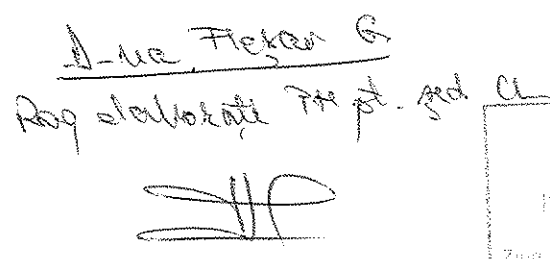 D-na Fleșer G
Rog elaborați PH pt. șed. CL